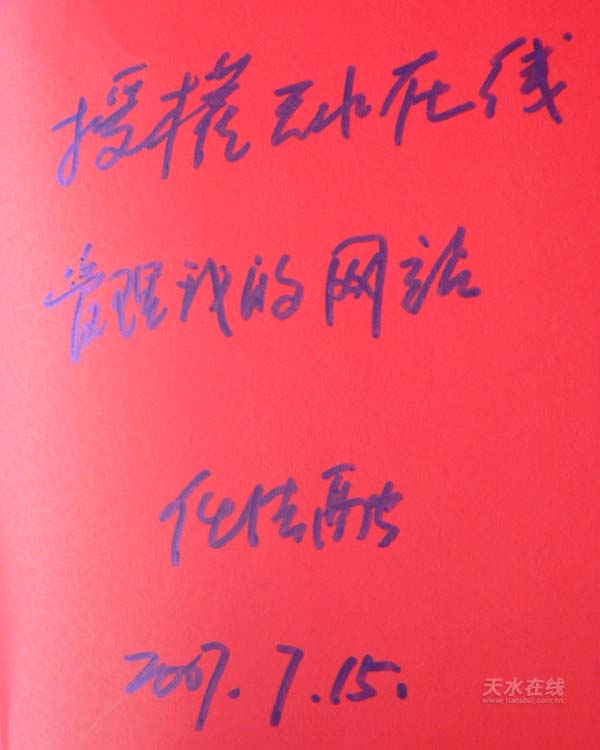 授权天水在线
管理我的网站
2007.7.15.
天水在线
www.tianshui.com.cn